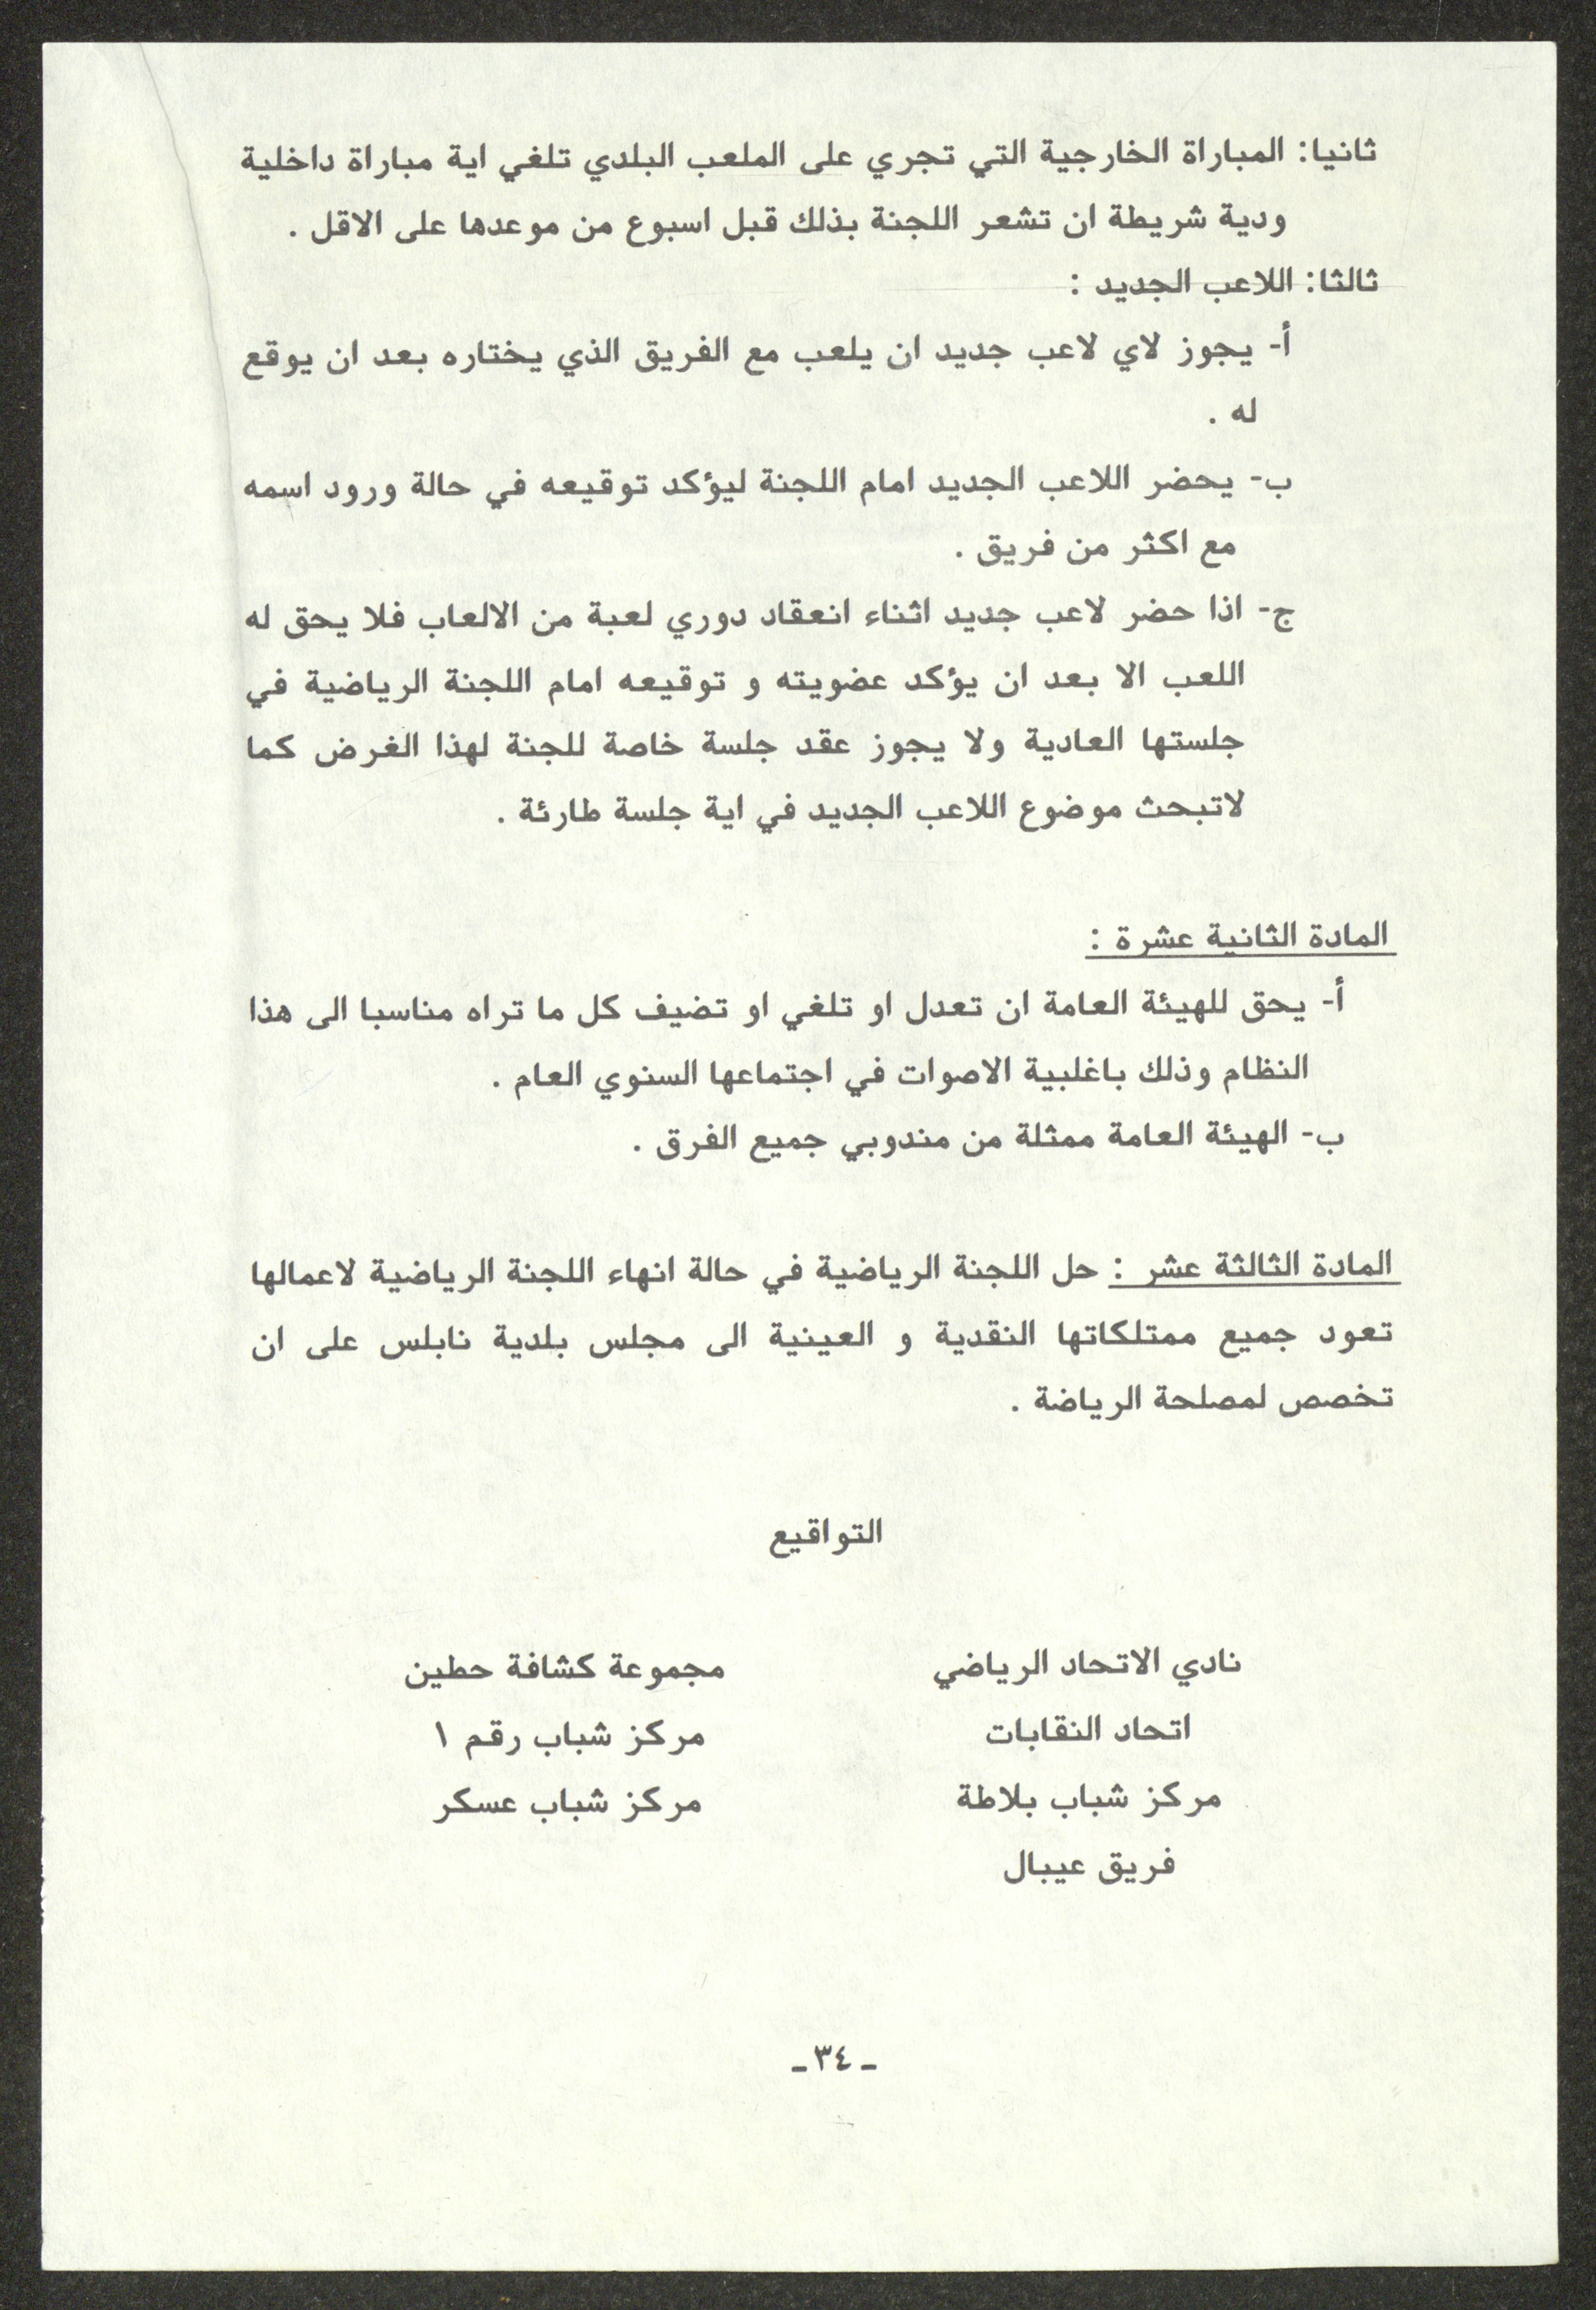 ثانيا: المباراة الخارجية التي تجري على الملعب البلدي تلغي اية مباراة داخلية
ودية شريطة ان تشعر اللجنة بذلك قبل اسبوع من موعدها على الاقل .
ثالثا: اللاعب الجديد :
أ- يجوز لاي لاعب جديد ان يلعب مع الفريق الذي يختاره بعد ان يوقع
له .
ب- يحضر اللاعب الجديد امام اللجنة ليؤكد توقيعه في حالة ورود اسمه
مع اكثر من فريق .
ج- اذا حضر لاعب جديد اثناء انعقاد دوري لعبة من الالعاب فلا يحق له
اللعب الا بعد ان يؤكد عضويته و توقيعه امام اللجنة الرياضية في
جلستها العادية ولا يجوز عقد جلسة خاصة للجنة لهذا الغرض كما
لاتبحث موضوع اللاعب الجديد في اية جلسة طارئة .
المادة الثانية عشرة :
أ- يحق للهيئة العامة ان تعدل او تلغي او تضيف كل ما تراه مناسبا الى هذا
النظام وذلك باغلبية الاصوات في اجتماعها السنوي العام .
ب- الهيئة العامة ممثلة من مندوبي جميع الفرق .
المادة الثالثة عشر : حل اللجنة الرياضية في حالة انهاء اللجنة الرياضية لاعمالها
تعود جميع ممتلكاتها النقدية و العينية الى مجلس بلدية نابلس على ان
تخصص لمصلحة الرياضة .
التواقيع
نادي الاتحاد الرياضي مجموعة كشافة حطين
اتحاد النقابات مركز شباب رقم ١
مركز شباب بلاطة مركز شباب عسكر
فريق عيبال
ـ ٣٤ ـ